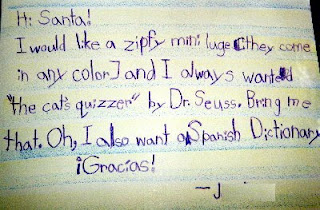 Hi Santa!
I would like a zipfy mini luge [they come
in any color] and I always wanted
"the cat's quizzer" by Dr. Seuss. Bring me
that. Oh, I also want a Spanish Dictionary
¡Gracias!
-J